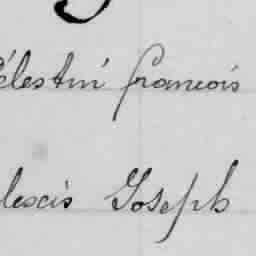 élestin françois
lexis Joseph